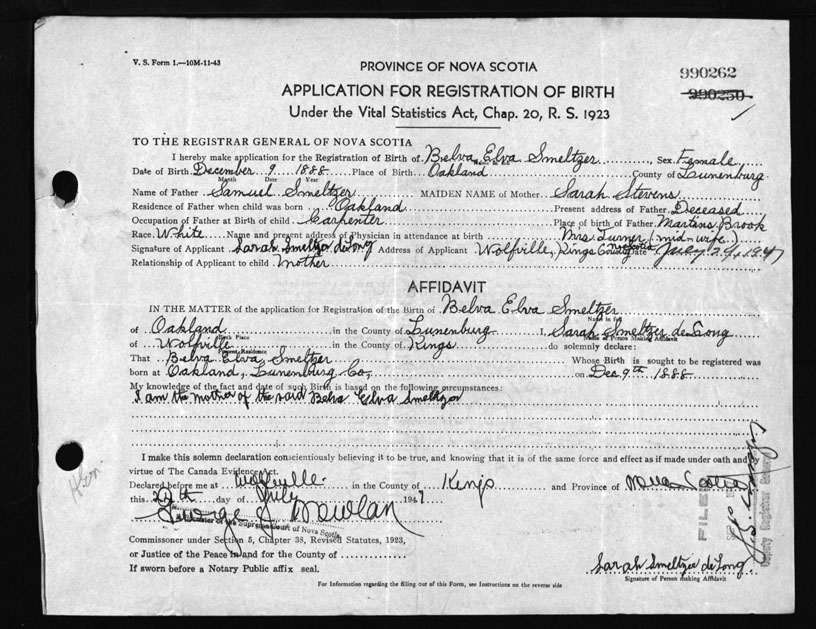 V. S. Form 1.—10M-11-43
PROVINCE OF NOVA SCOTIA
990262
APPLICATION FOR REGISTRATION OF BIRTH
990250
Under the Vital Statistics Act, Chap. 20, R. S. 1923
TO THE REGISTRAR GENERAL OF NOVA SCOTIA
I hereby make application for the Registration of Birth of Belva Elva Smeltzer, Sex Female,
Date of Birth December 9 1888 Place of Birth Oakland County of Lunenburg
Month Date Year
Name of Father Samuel Smeltzer MAIDEN NAME of Mother Sarah Stevens
Residence of Father when child was born Oakland Present address of Father Deceased
Occupation of Father at Birth of child Carpenter Place of birth of Father Martins Brook
Race White Name and present address of Physician in attendance at birth Mrs Turner (mid-wife)
Signature of Applicant Sarah Smeltzer deLong Address of Applicant Wolfville, Kings County Date July
Relationship of Applicant to child Mother
AFFIDAVIT
IN THE MATTER of the application for Registration of the Birth of Belva Elva Smeltzer
Name in full
of Oakland in the County of Lunenburg I, Sarah Smeltzer deLong
Birth Place Name of Person Making Affidavit
of Wolfville in the County of Kings do solemnly declare:
Present Residence
That Belva Elva Smeltzer Whose Birth is sought to be registered was
born at Oakland, Lunenburg Co, on Dec 9th 1888
My knowledge of the fact and date of such Birth is based on the following circumstances:
I am the mother of the said Belva Elva Smeltzer
I make this solemn declaration conscientiously believing it to be true, and knowing that it is of the same force and effect as if made under oath and by
virtue of The Canada Evidence Act.
Declared before me at Wolfville in the County of Kings and Province of Nova Scotia
this day of July 1947
George Nowlan
of the Supreme Court of Nova Scotia
Commissioner under Section 5, Chapter 38, Revised Statutes, 1923,
or Justice of the Peace in and for the County of
If sworn before a Notary Public affix seal.
FILED
Deputy Registrar General
Sarah Smeltzer deLong
Signature of Person making Affidavit
For Information regarding the filling out of this Form, see Instructions on the reverse side